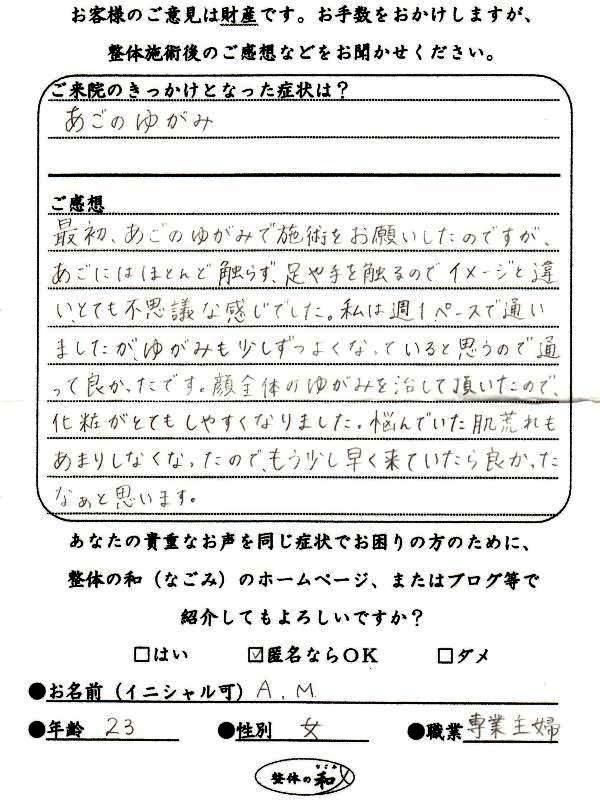 お客様のご意見は財産です。お手数をおかけしますが、
整体施術後のご感想などをお聞かせください。
ご来院のきっかけとなった症状は？
あごのゆがみ
ご感想
最初、あごのゆがみで施術をお願いしたのですが、
あごにはほとんど触らず、足や手を触るのでイメージと違
い、とても不思議な感じでした。私は週1ペースで通い
ましたが、ゆがみも少しずつよくなっていると思うので通
って良かったです。顔全体のゆがみを治して頂いたので、
化粧がとてもしやすくなりました。悩んでいた肌荒れも
あまりしなくなったので、もう少し早く来ていたら良かった
なぁと思います。
あなたの貴重なお声を同じ症状でお困りの方のために、
整体の和（なごみ）のホームページ、またはブログ等で
紹介してもよろしいですか？
□はい ☑匿名ならOK □ダメ
●お名前（イニシャル可） A.M
●年齢 23 ●性別 女 ●職業 専業主婦
整体の和 なごみ